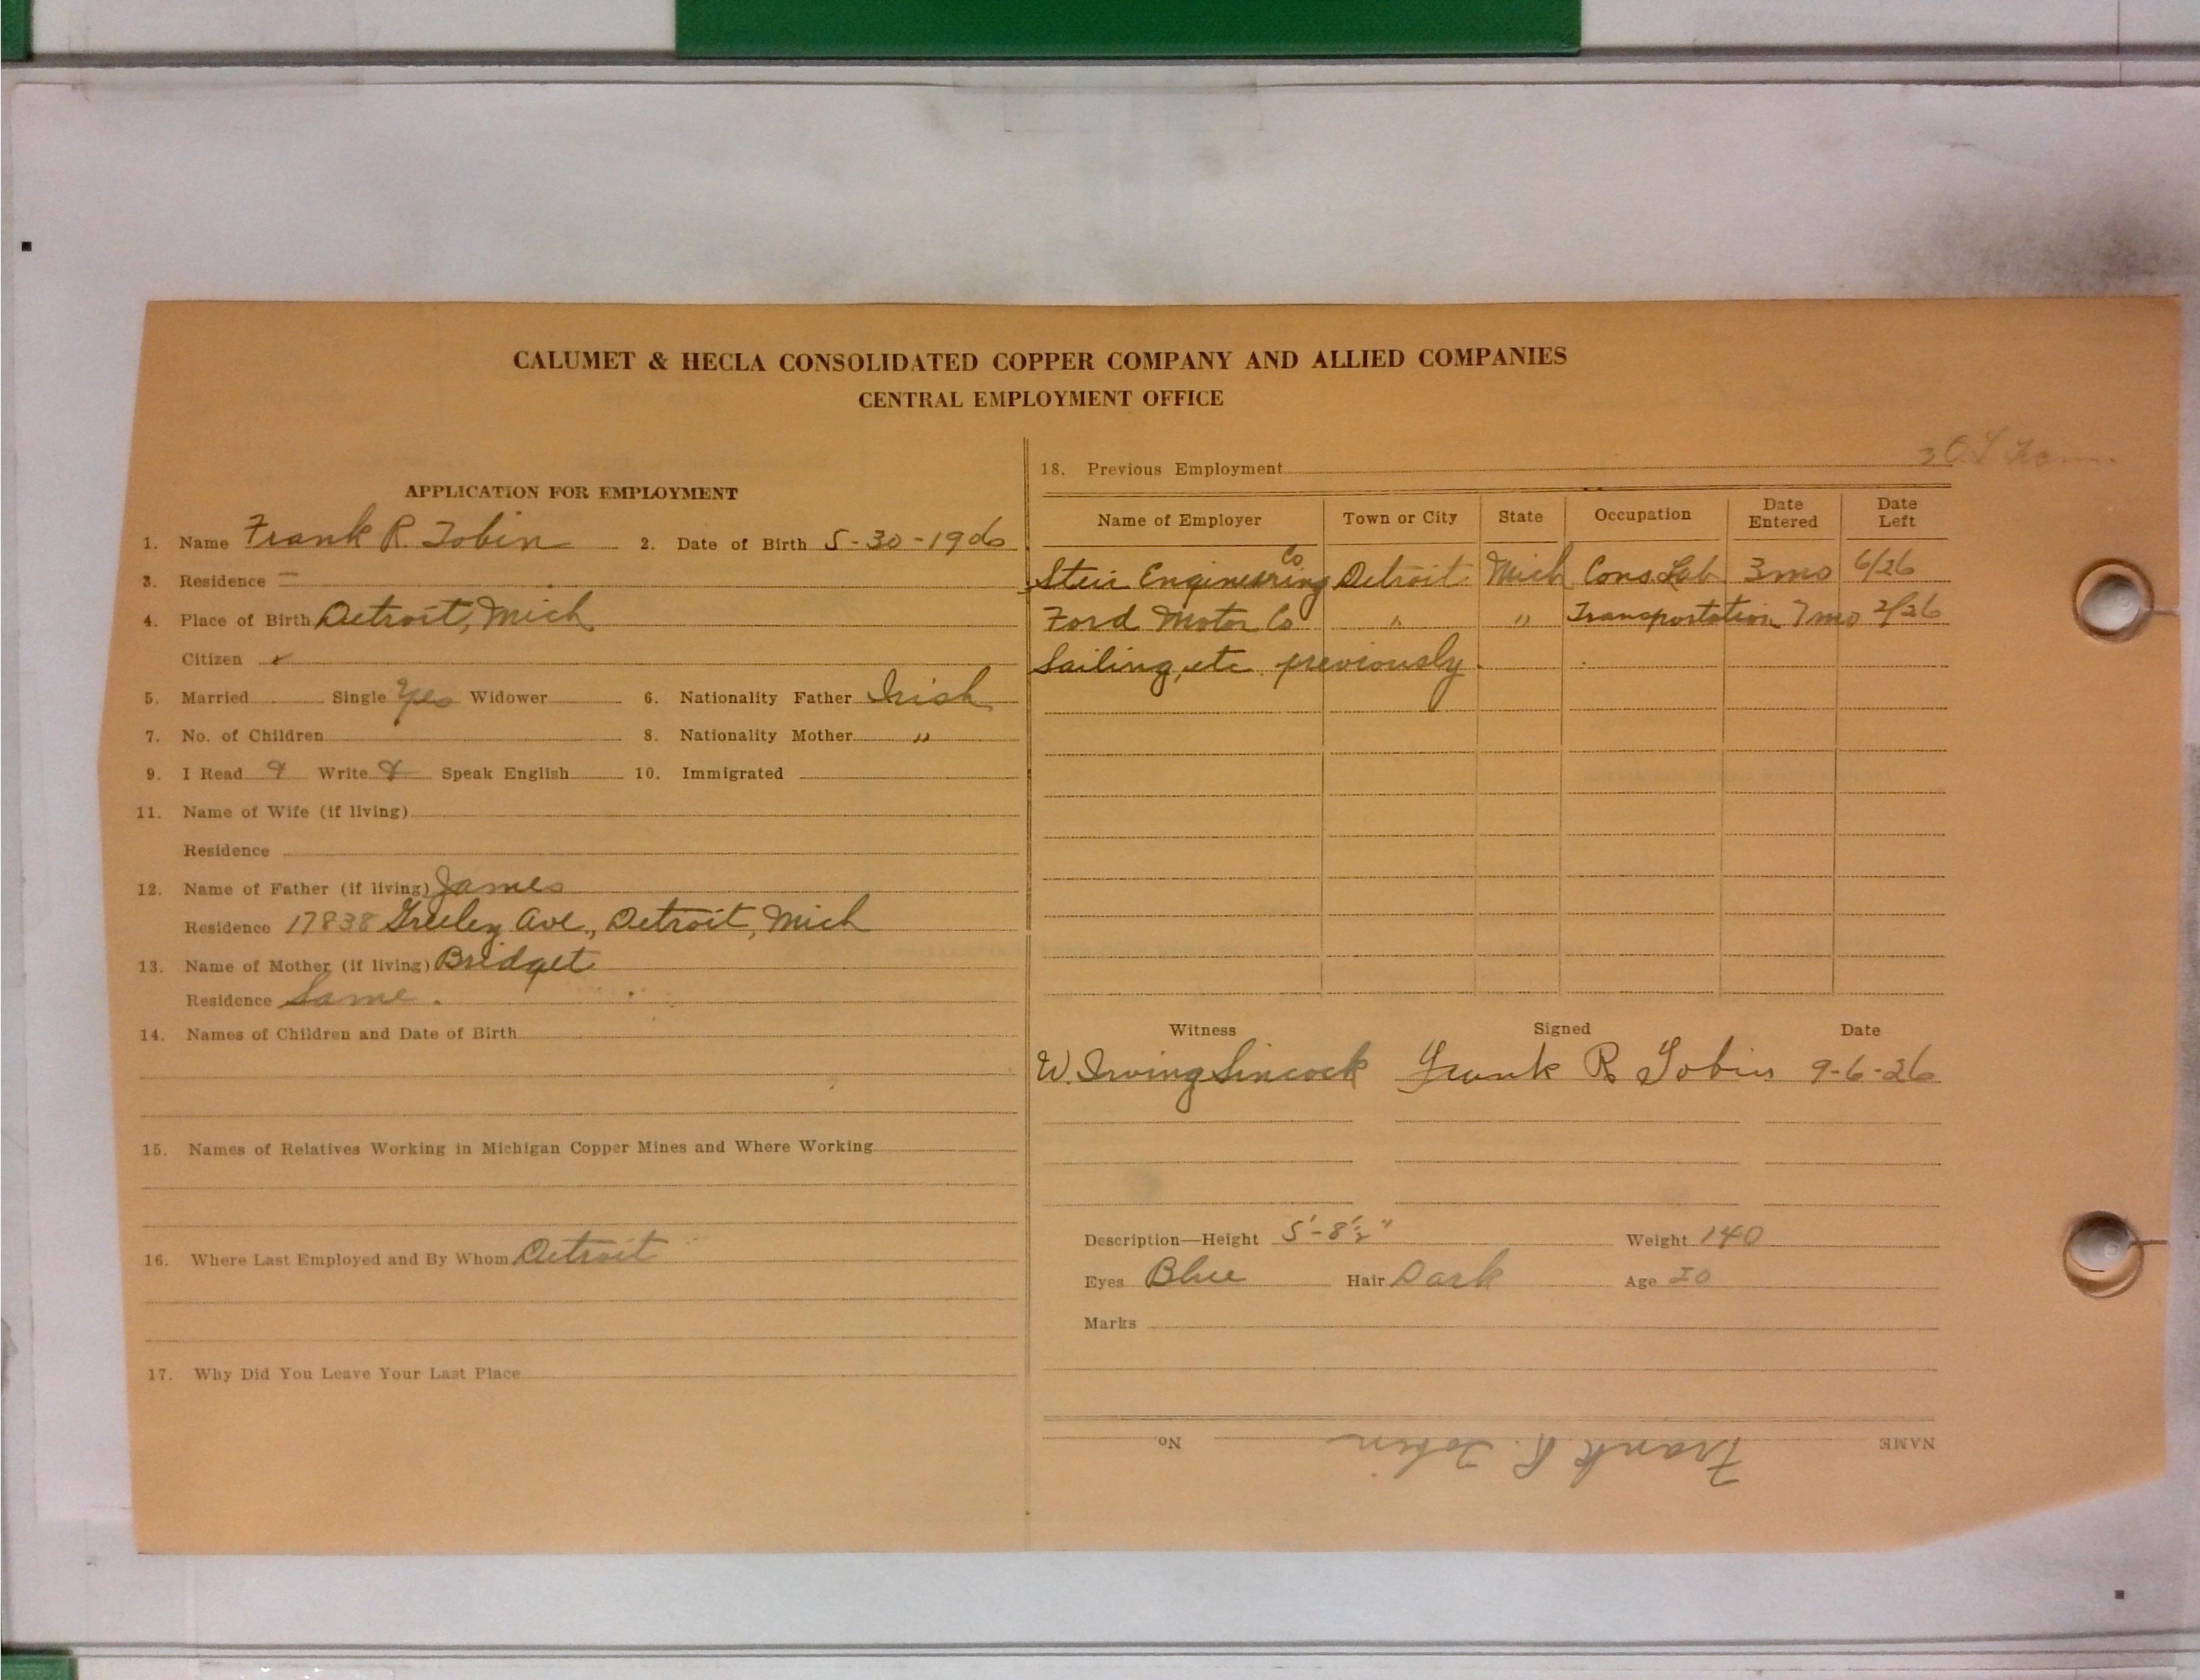 CALUMET & HECLA CONSOLIDATED COPPER COMPANY AND ALLIED COMPANIES
CENTRAL EMPLOYMENT OFFICE
APPLICATION FOR EMPLOYMENT
1. Name Frank R. Tobin 2. Date of Birth 5-30-1906
3. Residence —
4. Place of Birth Detroit, Mich
Citizen ✓
5. Married Single Yes Widower 6. Nationality Father Irish
7. No. of Children 8. Nationality Mother "
9. I Read & Write & Speak English 10. Immigrated
11. Name of Wife (if living)
Residence
12. Name of Father (if living) James
Residence 17838 Greeley Ave., Detroit, Mich
13. Name of Mother (if living) Bridget
Residence Same.
14. Names of Children and Date of Birth
15. Names of Relatives Working in Michigan Copper Mines and Where Working
16. Where Last Employed and By Whom Detroit
17. Why Did You Leave Your Last Place
18. Previous Employment
Name of Employer Town or City State Occupation Date Entered Date Left
Engineering Co Detroit Mich Cons. Lab 3 mo 6/26
Ford Motor Co " " Transportation 7 mo 2/26
Sailing, etc previously.
Witness Signed Date
W. Irving Sincock Frank R Tobin 9-6-26
Description—Height 5'-8½" Weight 140
Eyes Blue Hair Dark Age 20
Marks
NAME Frank R. Tobin No.